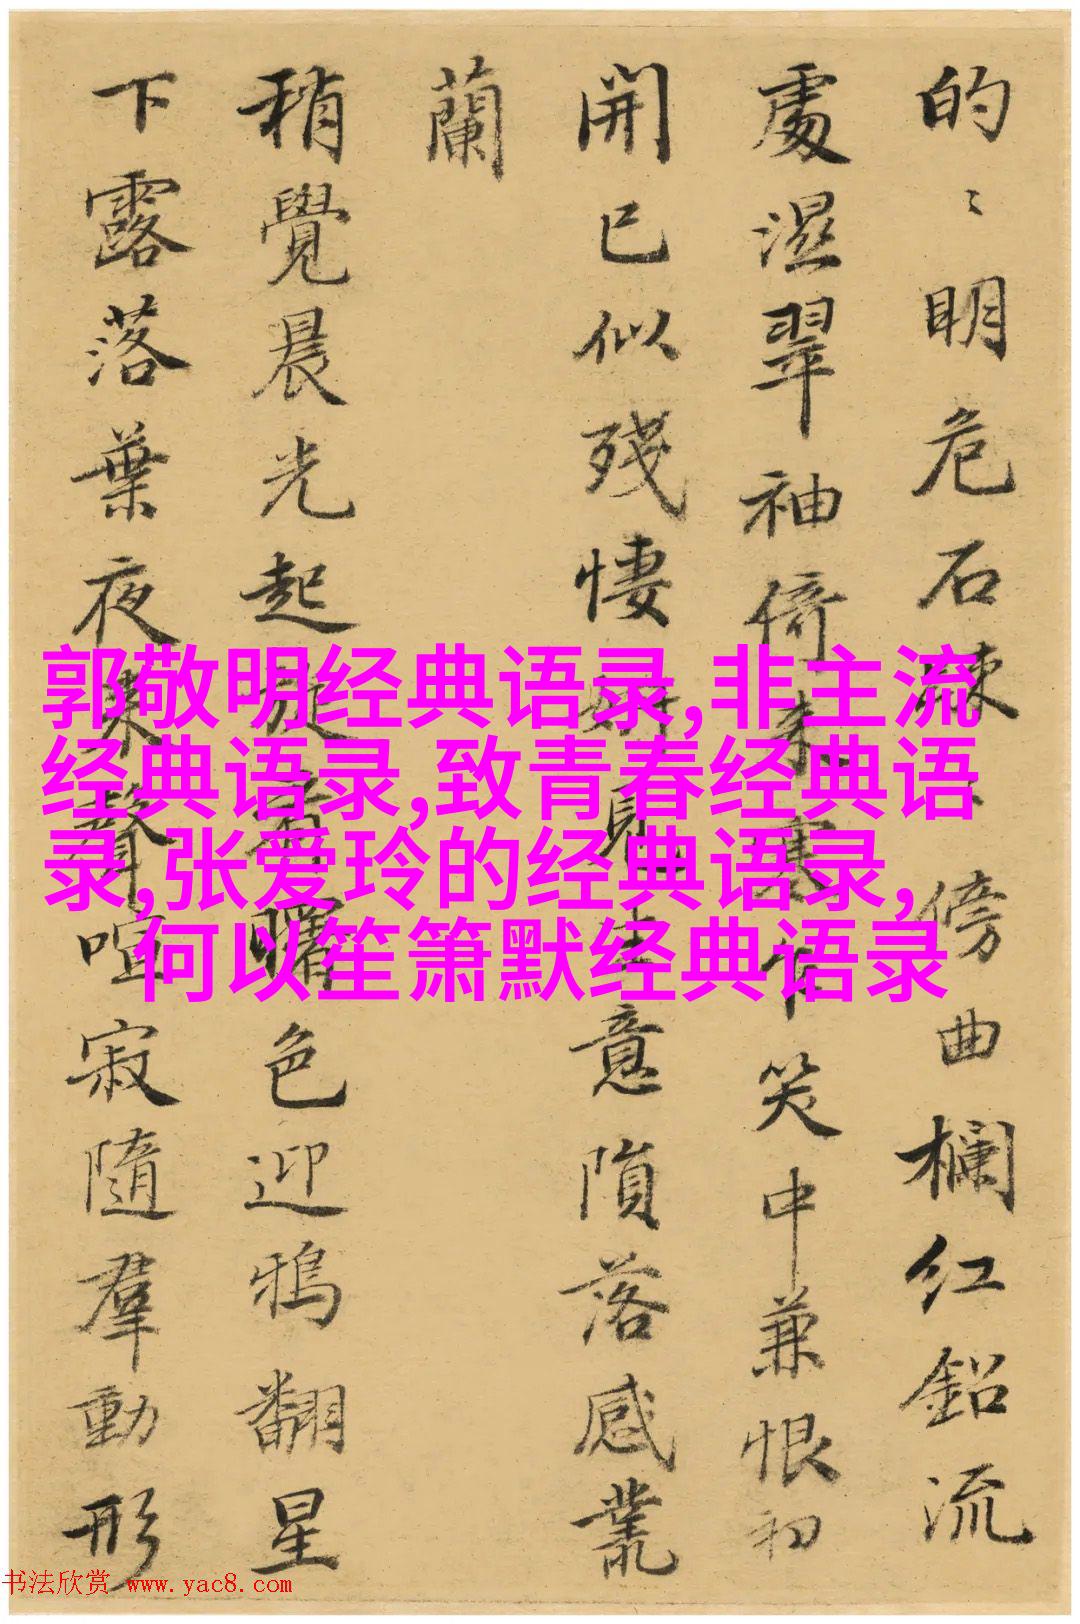 的〻明危石疎〻傍曲欄红鉛流
處濕翠袖倚來寒
笑中兼恨初
開已似残悽
見生意隕落感叢
蘭
稍覺晨光起
曙色迎鸦翻星
下露落葉夜
聲喧寂隨羣動形
郭敬明经典语录,非主流
经典语录,致青春经典语
录,张爱玲的经典语录,
何以笙箫默经典语录
书法欣赏 www.yac8.com